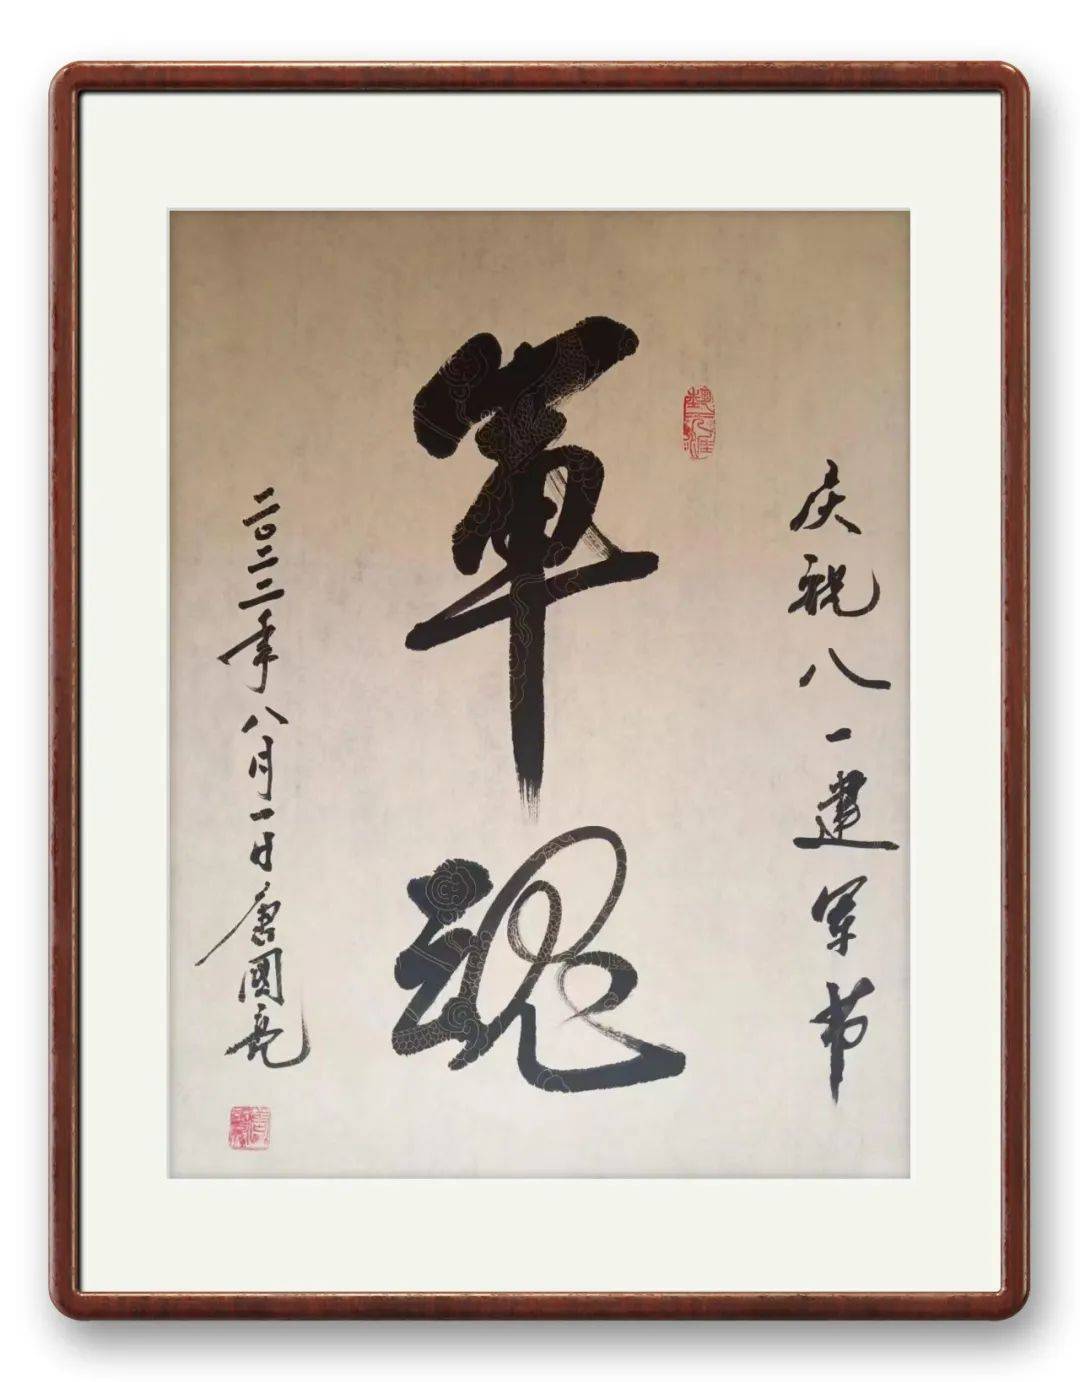 庆祝八一建军节
軍魂
二〇二二年八月一日唐國亮